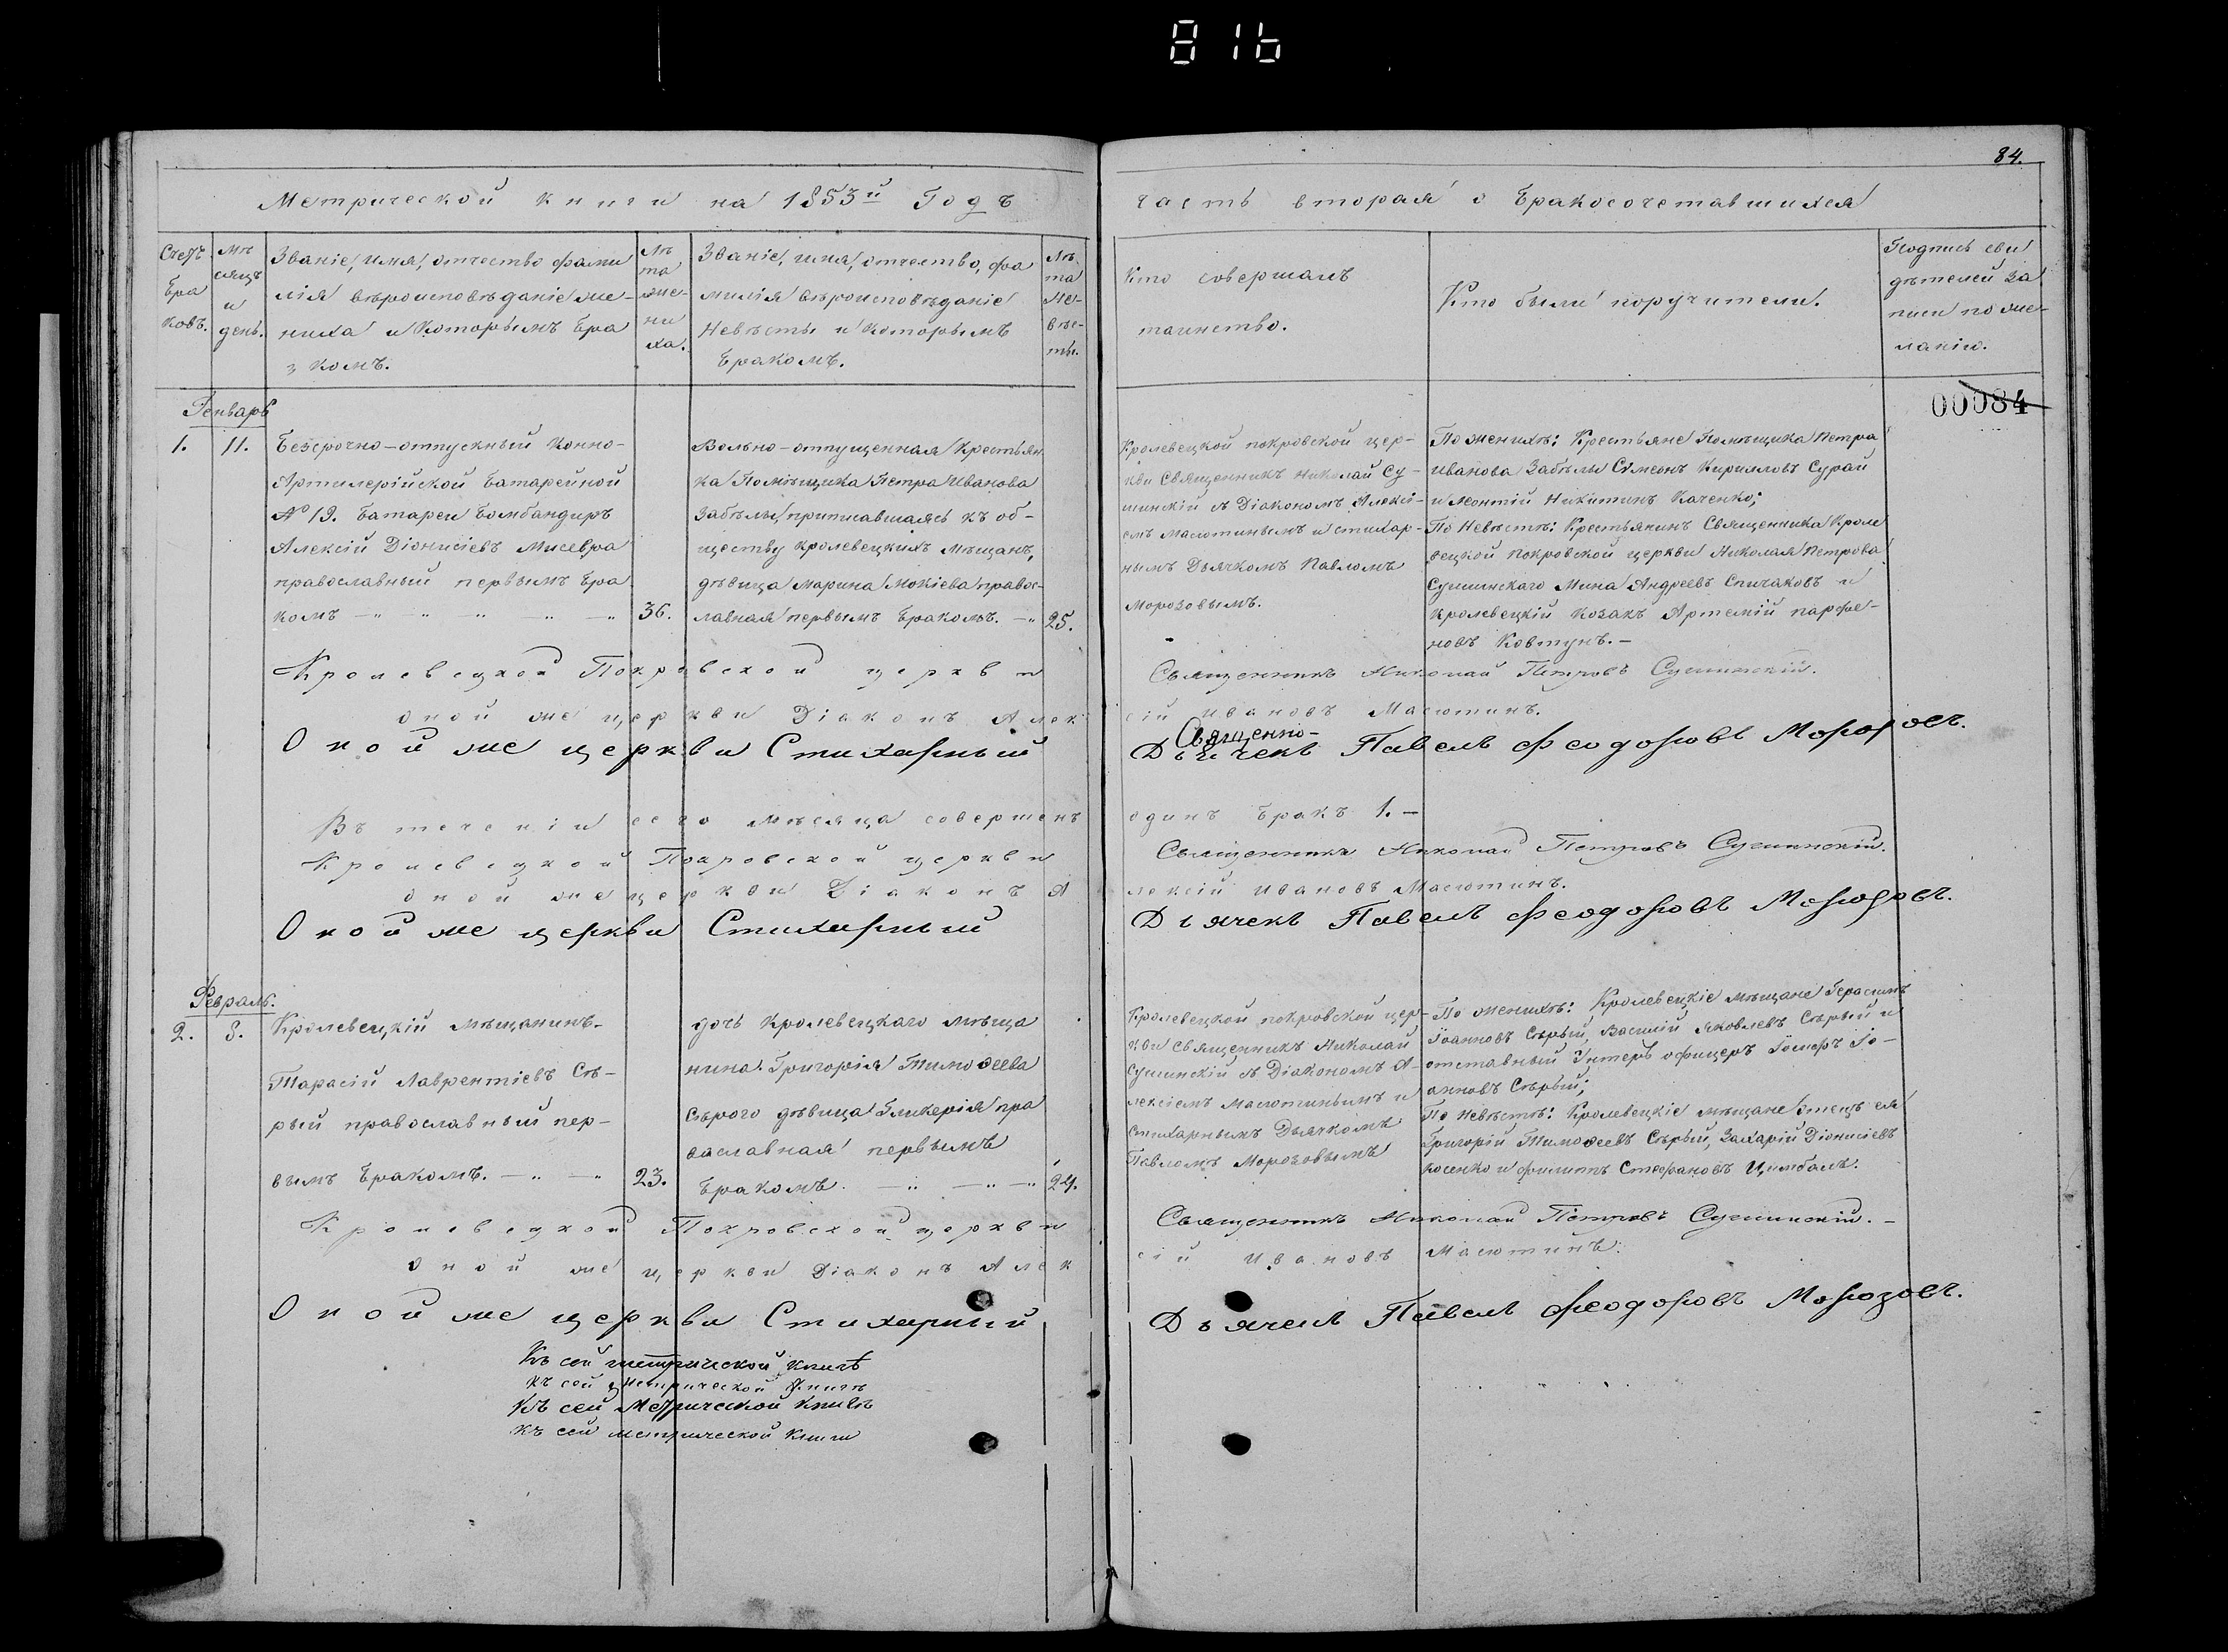 816
84.
Метрической книги на 1853й Годъ
часть вторая о Бракосочетавшихся
Счетъ Браковъ.
Мѣсяцъ и день.
Званіе, имя, отчество фами
лія вѣроисповѣданіе же-
ниха и Которымъ Бра
комъ.
Лѣта жениха.
Званіе, имя, отчество, фа
милія вѣроисповѣданіе
Невѣсты и Которымъ
Бракомъ.
Лѣта Невѣсты.
Кто совершалъ
таинство.
Кто были поручители.
Подпись сви
дѣтелей за
писи по же-
ланію.
00084
Генварь
1. 11.
Безсрочно-отпускный Конно-
Артилерійской Батарейной
№ 19. Батареи Бомбандиръ
Алексій Діонисіевъ Мисевра
православный первымъ Бра
комъ 36.
Вольно-отпущенная Крестьян
ка Помѣщика Петра Иванова
Забѣлы, приписавшаясь къ об-
ществу Кролевецкихъ Мѣщанъ,
дѣвица Марина Мокіева правос-
лавная первымъ Бракомъ. 25.
Кролевецкой покровской цер-
кви Священникъ Николай Су-
шинскій съ Діакономъ Алексі-
емъ Масютинымъ и стихар-
нымъ Дьячкомъ Павломъ
Морозовымъ.
По женихѣ: Крестьяне Помѣщика Петра
Иванова Забѣлы Сѵмеонъ Кирилловъ Сурай
и Леонтій Никитинъ Каченко;
По Невѣстѣ: Крестьянинъ Священника Кроле
вецкой Покровской церкви Николая Петрова
Сушинскаго Мина Андреевъ Спичаковъ и
Кролевецкій Козакъ Артемій парфе-
новъ Ковтунъ.
Кролевецкой Покровской церкви Священникъ Николай Петровъ Сушинскій.
оной же церкви Діаконъ Алексій Ивановъ Масютинъ.
Священно-
Оной же церкви Стихарный Дьячекъ Павелъ Феодоровъ Морозовъ.
Въ теченіи сего мѣсяца совершенъ одинъ Бракъ 1.
Кролевецкой Покровской церкви Священникъ Николай Петровъ Сушинскій.
оной же церкви Діаконъ Алексій Ивановъ Масютинъ.
Оной же церкви Стихарный Дьячекъ Павелъ Феодоровъ Морозовъ.
Февраль.
2. 8.
Кролевецкій мѣщанинъ
Тарасій Лаврентіевъ Сѣ-
рый православный пер-
вымъ Бракомъ. 23.
дочь Кролевецкаго мѣща
нина Григорія Тимоѳеева
Сѣрого дѣвица Гликерія пра
вославная первымъ
Бракомъ. 24.
Кролевецкой покровской цер-
кви Священникъ Николай
Сушинскій съ Діакономъ А-
лексіемъ Масютинымъ и
стихарнымъ Дьячкомъ
Павломъ Морозовымъ
По женихѣ: Кролевецкіе мѣщане Герасимъ
Іоанновъ Сѣрый, Василій Яковлевъ Сѣрый и
отставный Унтеръ офицеръ Іосифъ Іо-
анновъ Сѣрый;
По Невѣстѣ: Кролевецкіе мѣщане отецъ ея
Григорій Тимоѳеевъ Сѣрый, Захарій Діонисіевъ
Косенко и филиппъ Стефановъ Цимбалъ.
Кролевецкой Покровской церкви Священникъ Николай Петровъ Сушинскій.
Оной же церкви Діаконъ Алексій Ивановъ Масютинъ.
Оной же церкви Стихарный Дьячекъ Павелъ Феодоровъ Морозовъ.
Къ сей метрической книгѣ
къ сей Метрической Книгѣ
Къ сей Метрической Книгѣ
къ сей метрической Книги